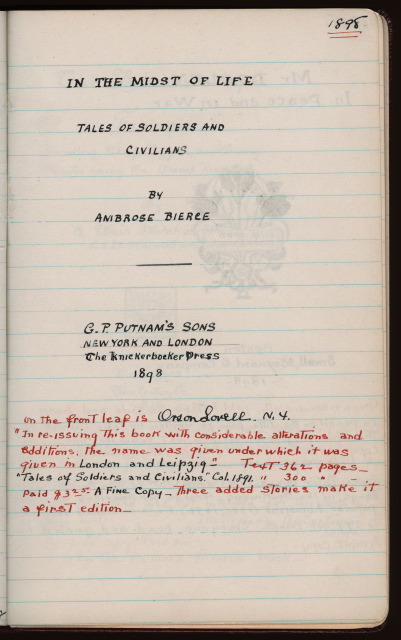 1898
IN THE MIDST OF LIFE
TALES OF SOLDIERS AND
CIVILIANS
BY
AMBROSE BIERCE
G. P. PUTNAM'S SONS
NEW YORK AND LONDON
The Knickerbocker Press
1898
on the front leaf is Orson Lowell. N.Y.
"In re-issuing this book with considerable alterations and
additions, the name was given under which it was
given in London and Leipzig" Text 362 pages_
"Tales of Soldiers and Civilians." Col. 1891. " 300 " _
Paid $3.25. A Fine Copy_ Three added stories make it
a first edition_